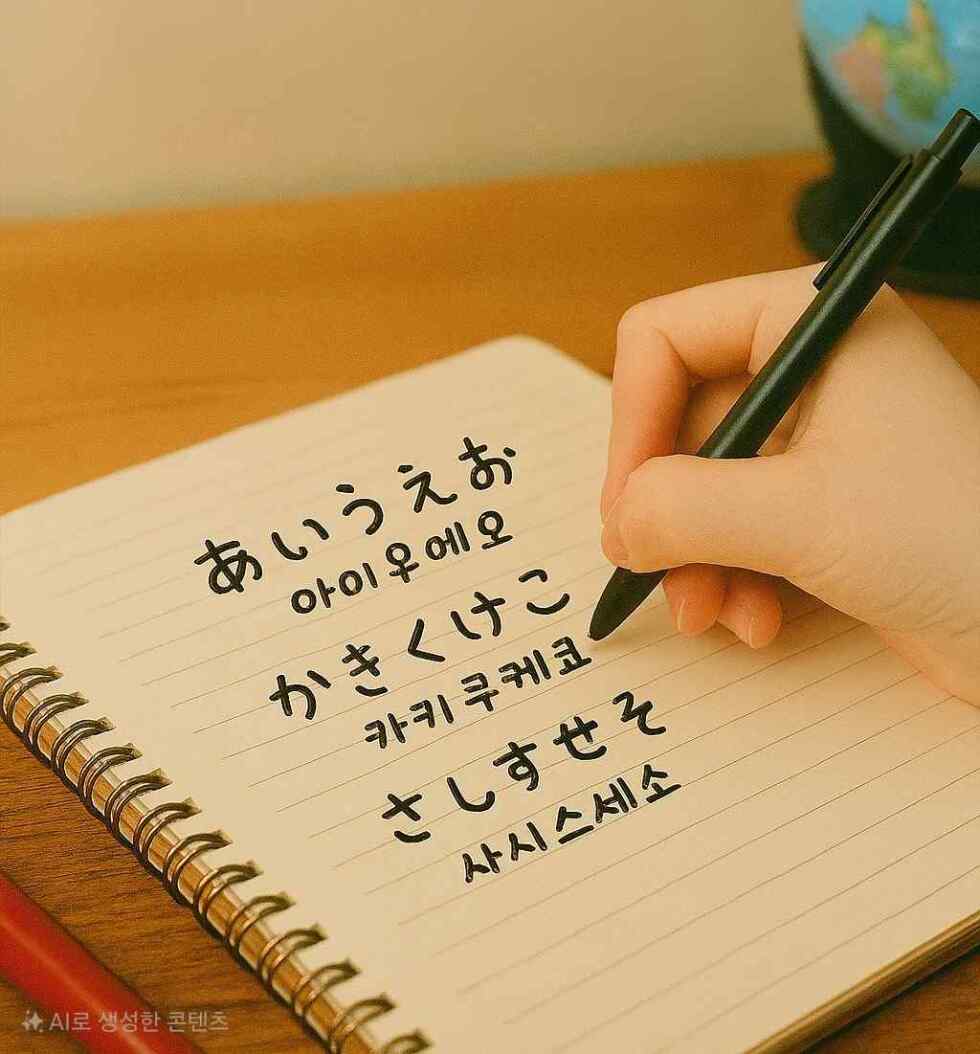 あいうえお
아이우에오
かきくけこ
카키쿠케코
さしすせそ
사시스세소
AI로 생성한 콘텐츠